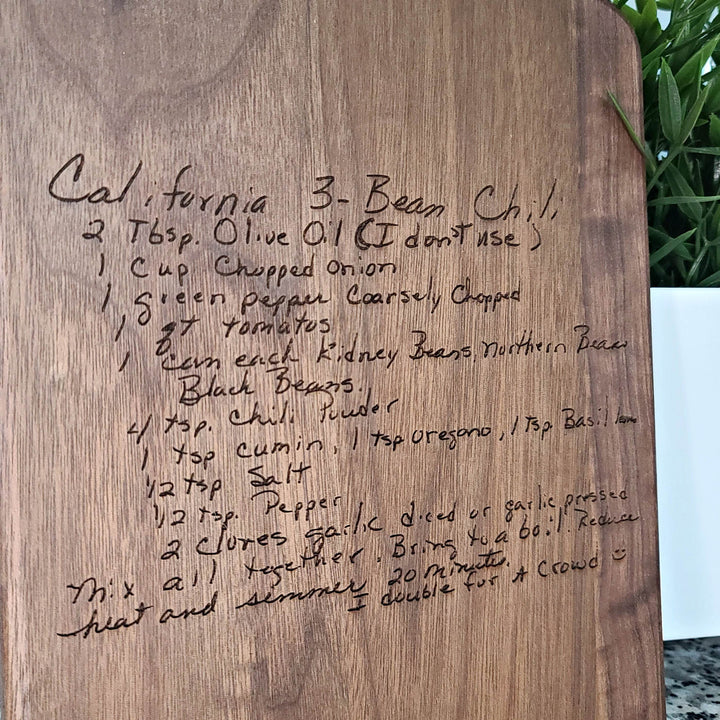 California 3-Bean Chili
2 Tbsp. Olive Oil (I don't use)
1 cup Chopped onion
1 green pepper Coarsely Chopped
1 qt tomatos
1 can each Kidney Beans, northern Beans
Black Beans.
4 tsp. Chili Powder
1 tsp cumin, 1 tsp oregano, 1 tsp Basil
1/2 tsp Salt
1/2 tsp. Pepper
2 cloves garlic diced or garlic pressed
Mix all together. Bring to a boil. Reduce
heat and semmer 20 minutes.
I double for A Crowd ☺